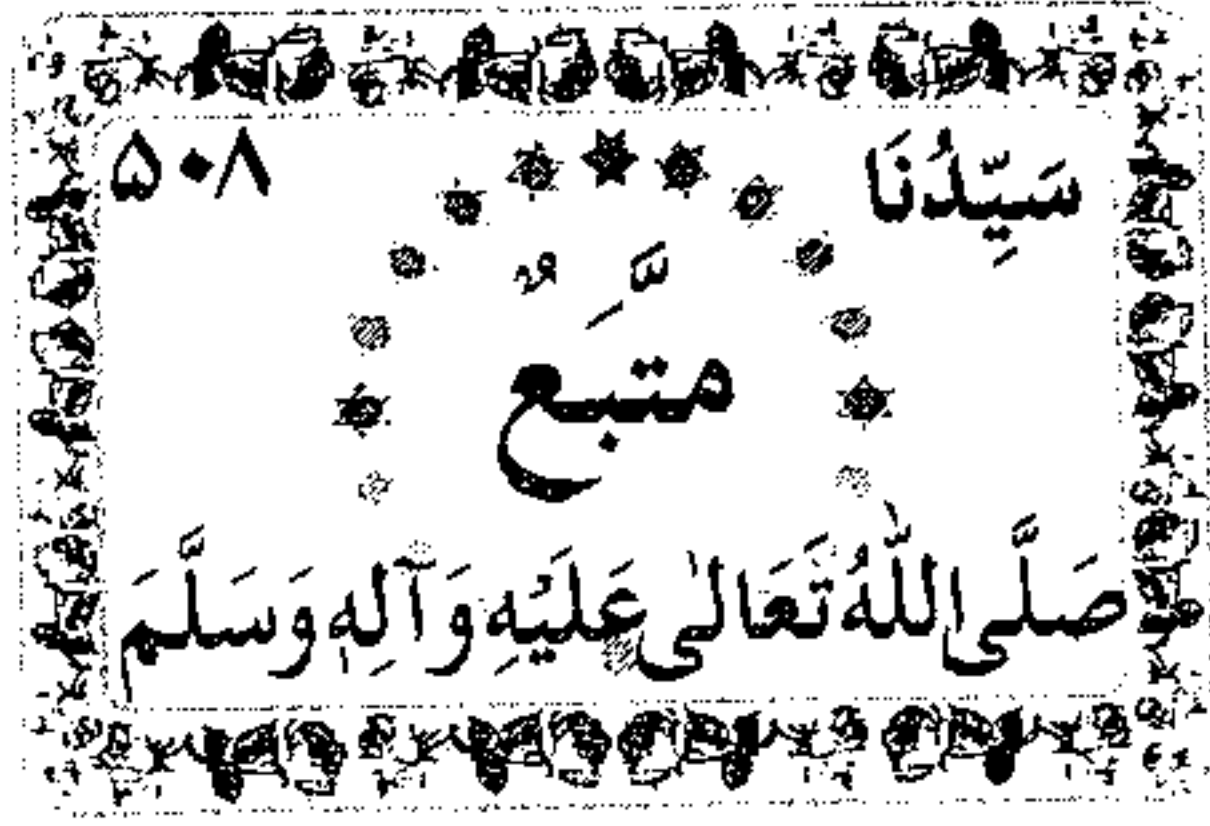 سَيِّدُنَا ۵۰۸
متَّبِعٌ
صَلَّى اللّٰهُ تَعَالىٰ عَلَيْهِ وَآلِهٖ وَسَلَّمَ